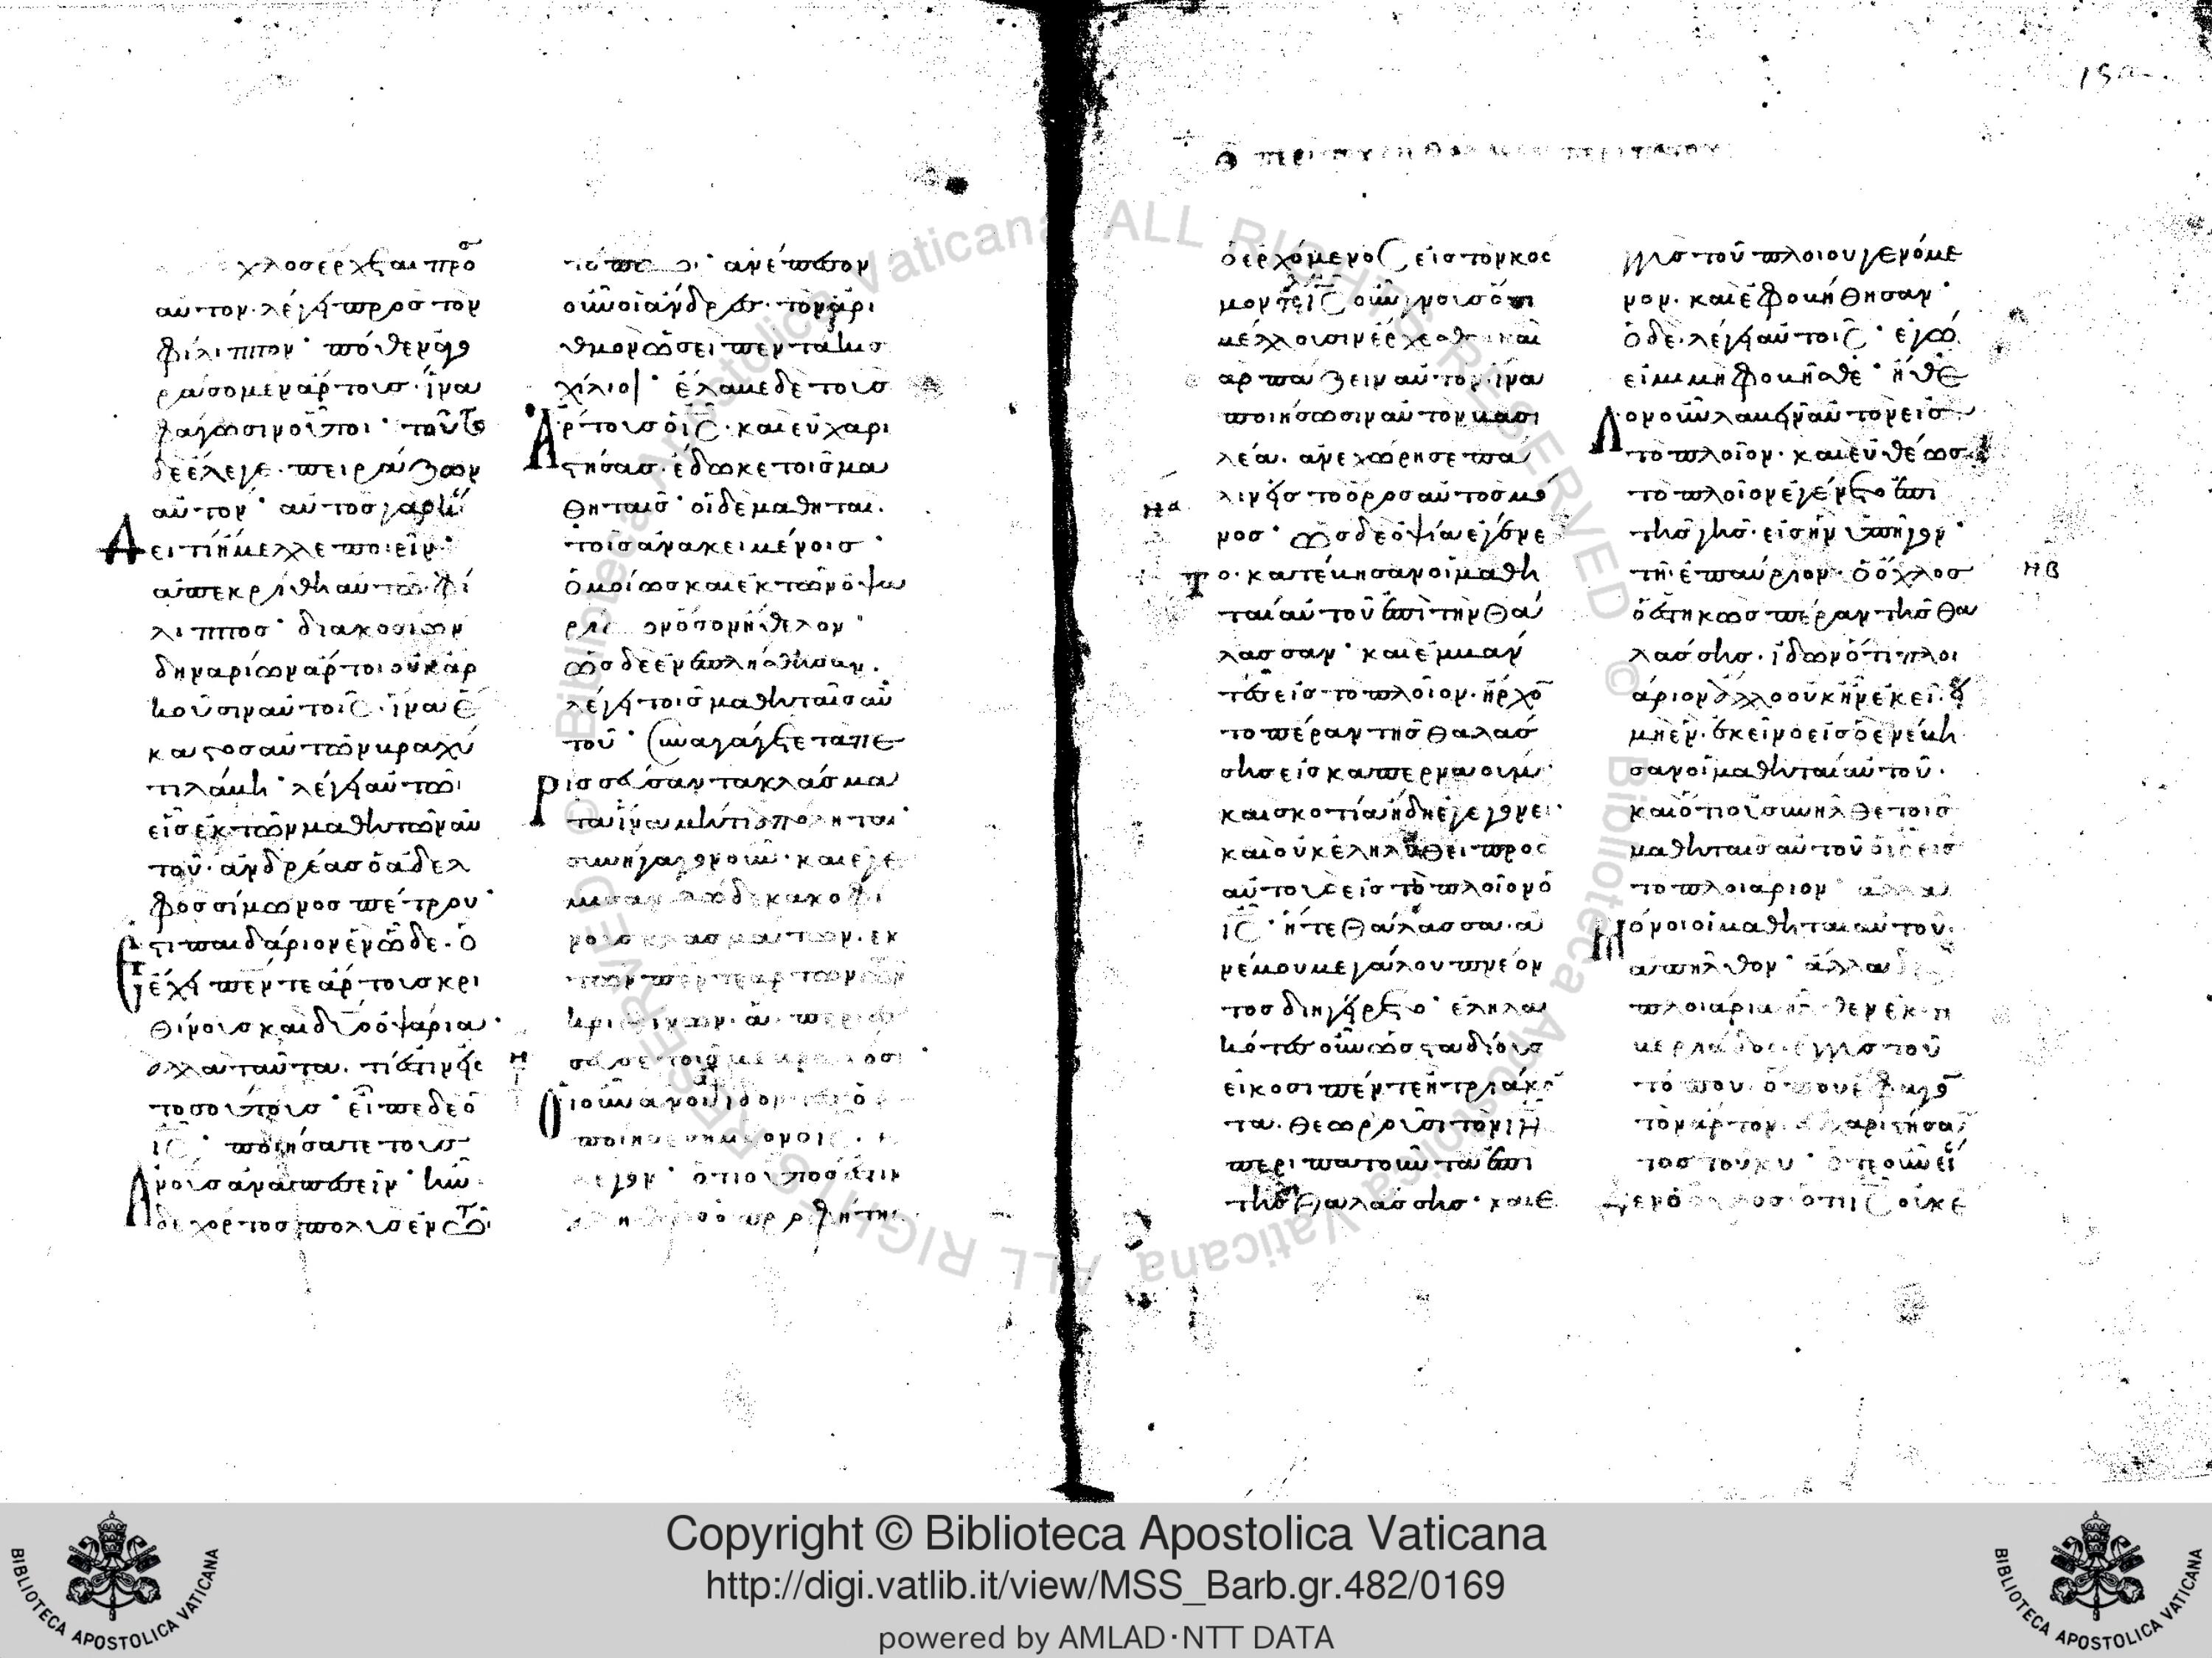 χλοσ ἔρχεται προ
αὐτον· λέγει προσ τὸν
φίλιππον· πόθεν ἀγο
ράσομεν ἄρτουσ· ἵνα
φάγωσιν οὗτοι· τοῦτο
δὲ ἔλεγε· πειράζων
αὐτόν· αὐτὸσ γὰρ ἤ
δει τί ἤμελλε ποιεῖν·
ἀπεκρίθη αὐτῶ· φί
λιπποσ· διακοσίων
δηναρίων ἄρτοι οὐκ ἀρ
κοῦσιν αὐτοῖσ· ἵνα ἕ
καστοσ αὐτῶν βραχύ
τι λάβη· λέγει αὐτῶ
εἷσ ἐκ τῶν μαθητῶν αὐ
τοῦ· ἀνδρέασ ὁ ἀδελ
φὸσ σίμωνοσ πέτρου·
ἔστι παιδάριον ἓν ὧδε· ὃ
ἔχει πέντε ἄρτουσ κρι
θίνουσ καὶ δύο ὀψάρια·
ἀλλὰ ταῦτα τί ἐστιν εἰσ
τοσούτουσ· εἶπε δὲ ὁ
ισ· ποιήσατε τοὺσ
ἀνουσ ἀναπεσεῖν· ἦν
δὲ χόρτοσ πολὺσ ἐν τῶ
τόπω· ἀνέπεσον
οὖν οἱ ἄνδρεσ· τὸν ἀρι
θμὸν ὡσεὶ πεντακισ
χίλιοι· ἔλαβε δὲ τοὺσ
ἄρτουσ ὁ ισ· καὶ εὐχαρι
στήσασ· ἔδωκε τοῖσ μα
θηταῖσ· οἱ δὲ μαθηταὶ
τοῖσ ἀνακειμένοισ·
ὁμοίωσ καὶ ἐκ τῶν ὀψα
ὅσον ἤθελον·
ὡσ δὲ ἐνεπλήσθησαν·
λέγει τοῖσ μαθηταῖσ αὐ
τοῦ· συναγάγετε τὰ πε
ρισσεύσαντα κλάσμα
τα ἵνα μή τι ἀπόληται·
συνήγαγον οὖν· καὶ ἐγέ
μισαν δώδεκα κοφί
νουσ κλασμάτων· ἐκ
τῶν πέντε ἄρτων τῶν
κριθίνων· ἃ
τοῖσ βεβρωκόσι·
οἱ οὖν ανοι ἰδόντεσ ὃ
ἐποίησε σημεῖον ὁ ισ·
ἔλεγον· ὅτι οὗτόσ ἐστιν
ὁ προφήτησ
ὁ ἐρχόμενοσ εἰσ τὸν κόσ
μον· ισ οὖν γνοὺσ ὅτι
μέλλουσιν ἔρχεσθαι καὶ
ἁρπάζειν αὐτὸν· ἵνα
ποιήσωσιν αὐτὸν βασι
λέα· ἀνεχώρησε πά
λιν εἰσ τὸ ὄροσ αὐτὸσ μό
νοσ· ὡσ δὲ ὀψία ἐγένε
το· κατέβησαν οἱ μαθη
ταὶ αὐτοῦ ἐπὶ τὴν θά
λασσαν· καὶ ἐμβάν
τεσ εἰσ τὸ πλοῖον· ἤρχον
το πέραν τῆσ θαλάσ
σησ εἰσ καπερναούμ·
καὶ σκοτία ἤδη ἐγεγόνει·
καὶ οὐκ ἐληλύθει πρὸσ
αὐτοὺσ εἰσ τὸ πλοῖον ὁ
ισ· ἥ τε θάλασσα· ἀ
νέμου μεγάλου πνέον
τοσ διηγείρετο· ἐληλα
κότεσ οὖν ὡσ σταδίουσ
εἴκοσι πέντε ἢ τριάκον
τα· θεωροῦσι τὸν ιν
περιπατοῦντα ἐπὶ
τῆσ θαλάσσησ· καὶ ἐγ
γὺσ τοῦ πλοίου γενόμε
νον· καὶ ἐφοβήθησαν·
ὁ δὲ λέγει αὐτοῖσ· ἐγώ
εἰμι μὴ φοβεῖσθε· ἤθε
λον οὖν λαβεῖν αὐτὸν εἰσ
τὸ πλοῖον· καὶ εὐθέωσ
τὸ πλοῖον ἐγένετο ἐπὶ
τῆσ γῆσ· εἰσ ἣν ὑπῆγον·
τῆ ἐπαύριον· ὁ ὄχλοσ
ὁ ἑστηκὼσ πέραν τῆσ θα
λάσσησ· ἰδὼν ὅτι πλοι
άριον ἄλλο οὐκ ἦν ἐκεῖ· εἰ
μὴ ἓν· ἐκεῖνο εἰσ ὃ ἐνέβη
σαν οἱ μαθηταὶ αὐτοῦ·
καὶ ὅτι οὐ συνῆλθε τοῖσ
μαθηταῖσ αὐτοῦ ὁ ισ εἰσ
τὸ πλοιάριον· ἀλλὰ
μόνοι οἱ μαθηταὶ αὐτοῦ
ἀπῆλθον· ἄλλα δὲ
πλοιάρια ἦλθεν ἐκ τι
βεριάδοσ· ἐγγὺσ τοῦ
τόπου ὅπου ἔφαγον
τὸν ἄρτον· εὐχαριστήσαν
τοσ τοῦ κυ· ὅτε οὖν εἶ
δεν ὁ ὄχλοσ ὅτι ισ οὐκ ἔ
Copyright © Biblioteca Apostolica Vaticana
http://digi.vatlib.it/view/MSS_Barb.gr.482/0169
powered by AMLAD·NTT DATA
BIBLIOTECA APOSTOLICA VATICANA
BIBLIOTECA APOSTOLICA VATICANA